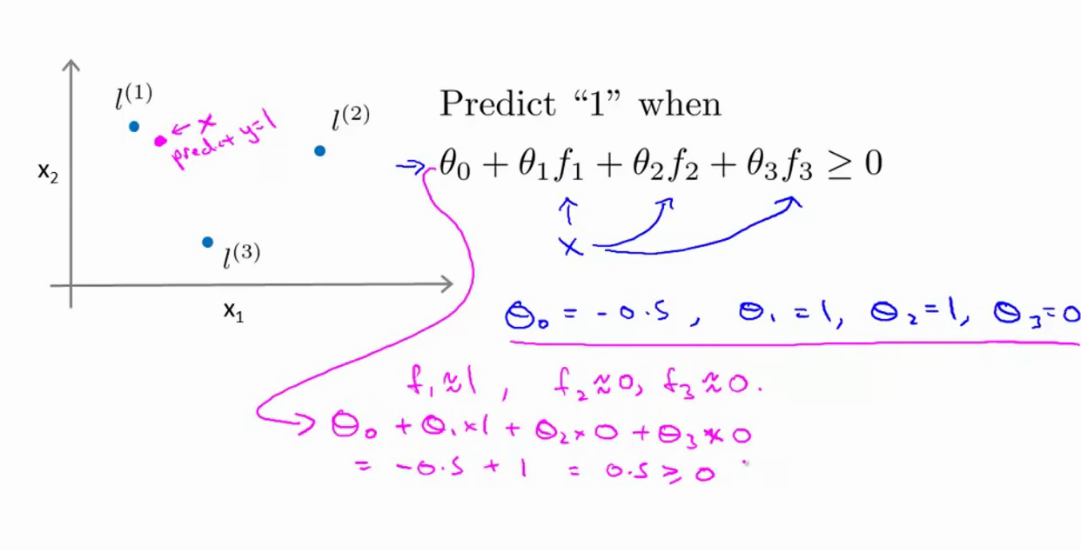 l⁽¹⁾
← x
predict y=1
l⁽²⁾
x₂
l⁽³⁾
x₁
Predict “1” when
→ θ₀ + θ₁f₁ + θ₂f₂ + θ₃f₃ ≥ 0
x
θ₀ = -0.5, θ₁ = 1, θ₂ = 1, θ₃ = 0
f₁ ≈ 1, f₂ ≈ 0, f₃ ≈ 0.
θ₀ + θ₁×1 + θ₂×0 + θ₃×0
= -0.5 + 1 = 0.5 ≥ 0